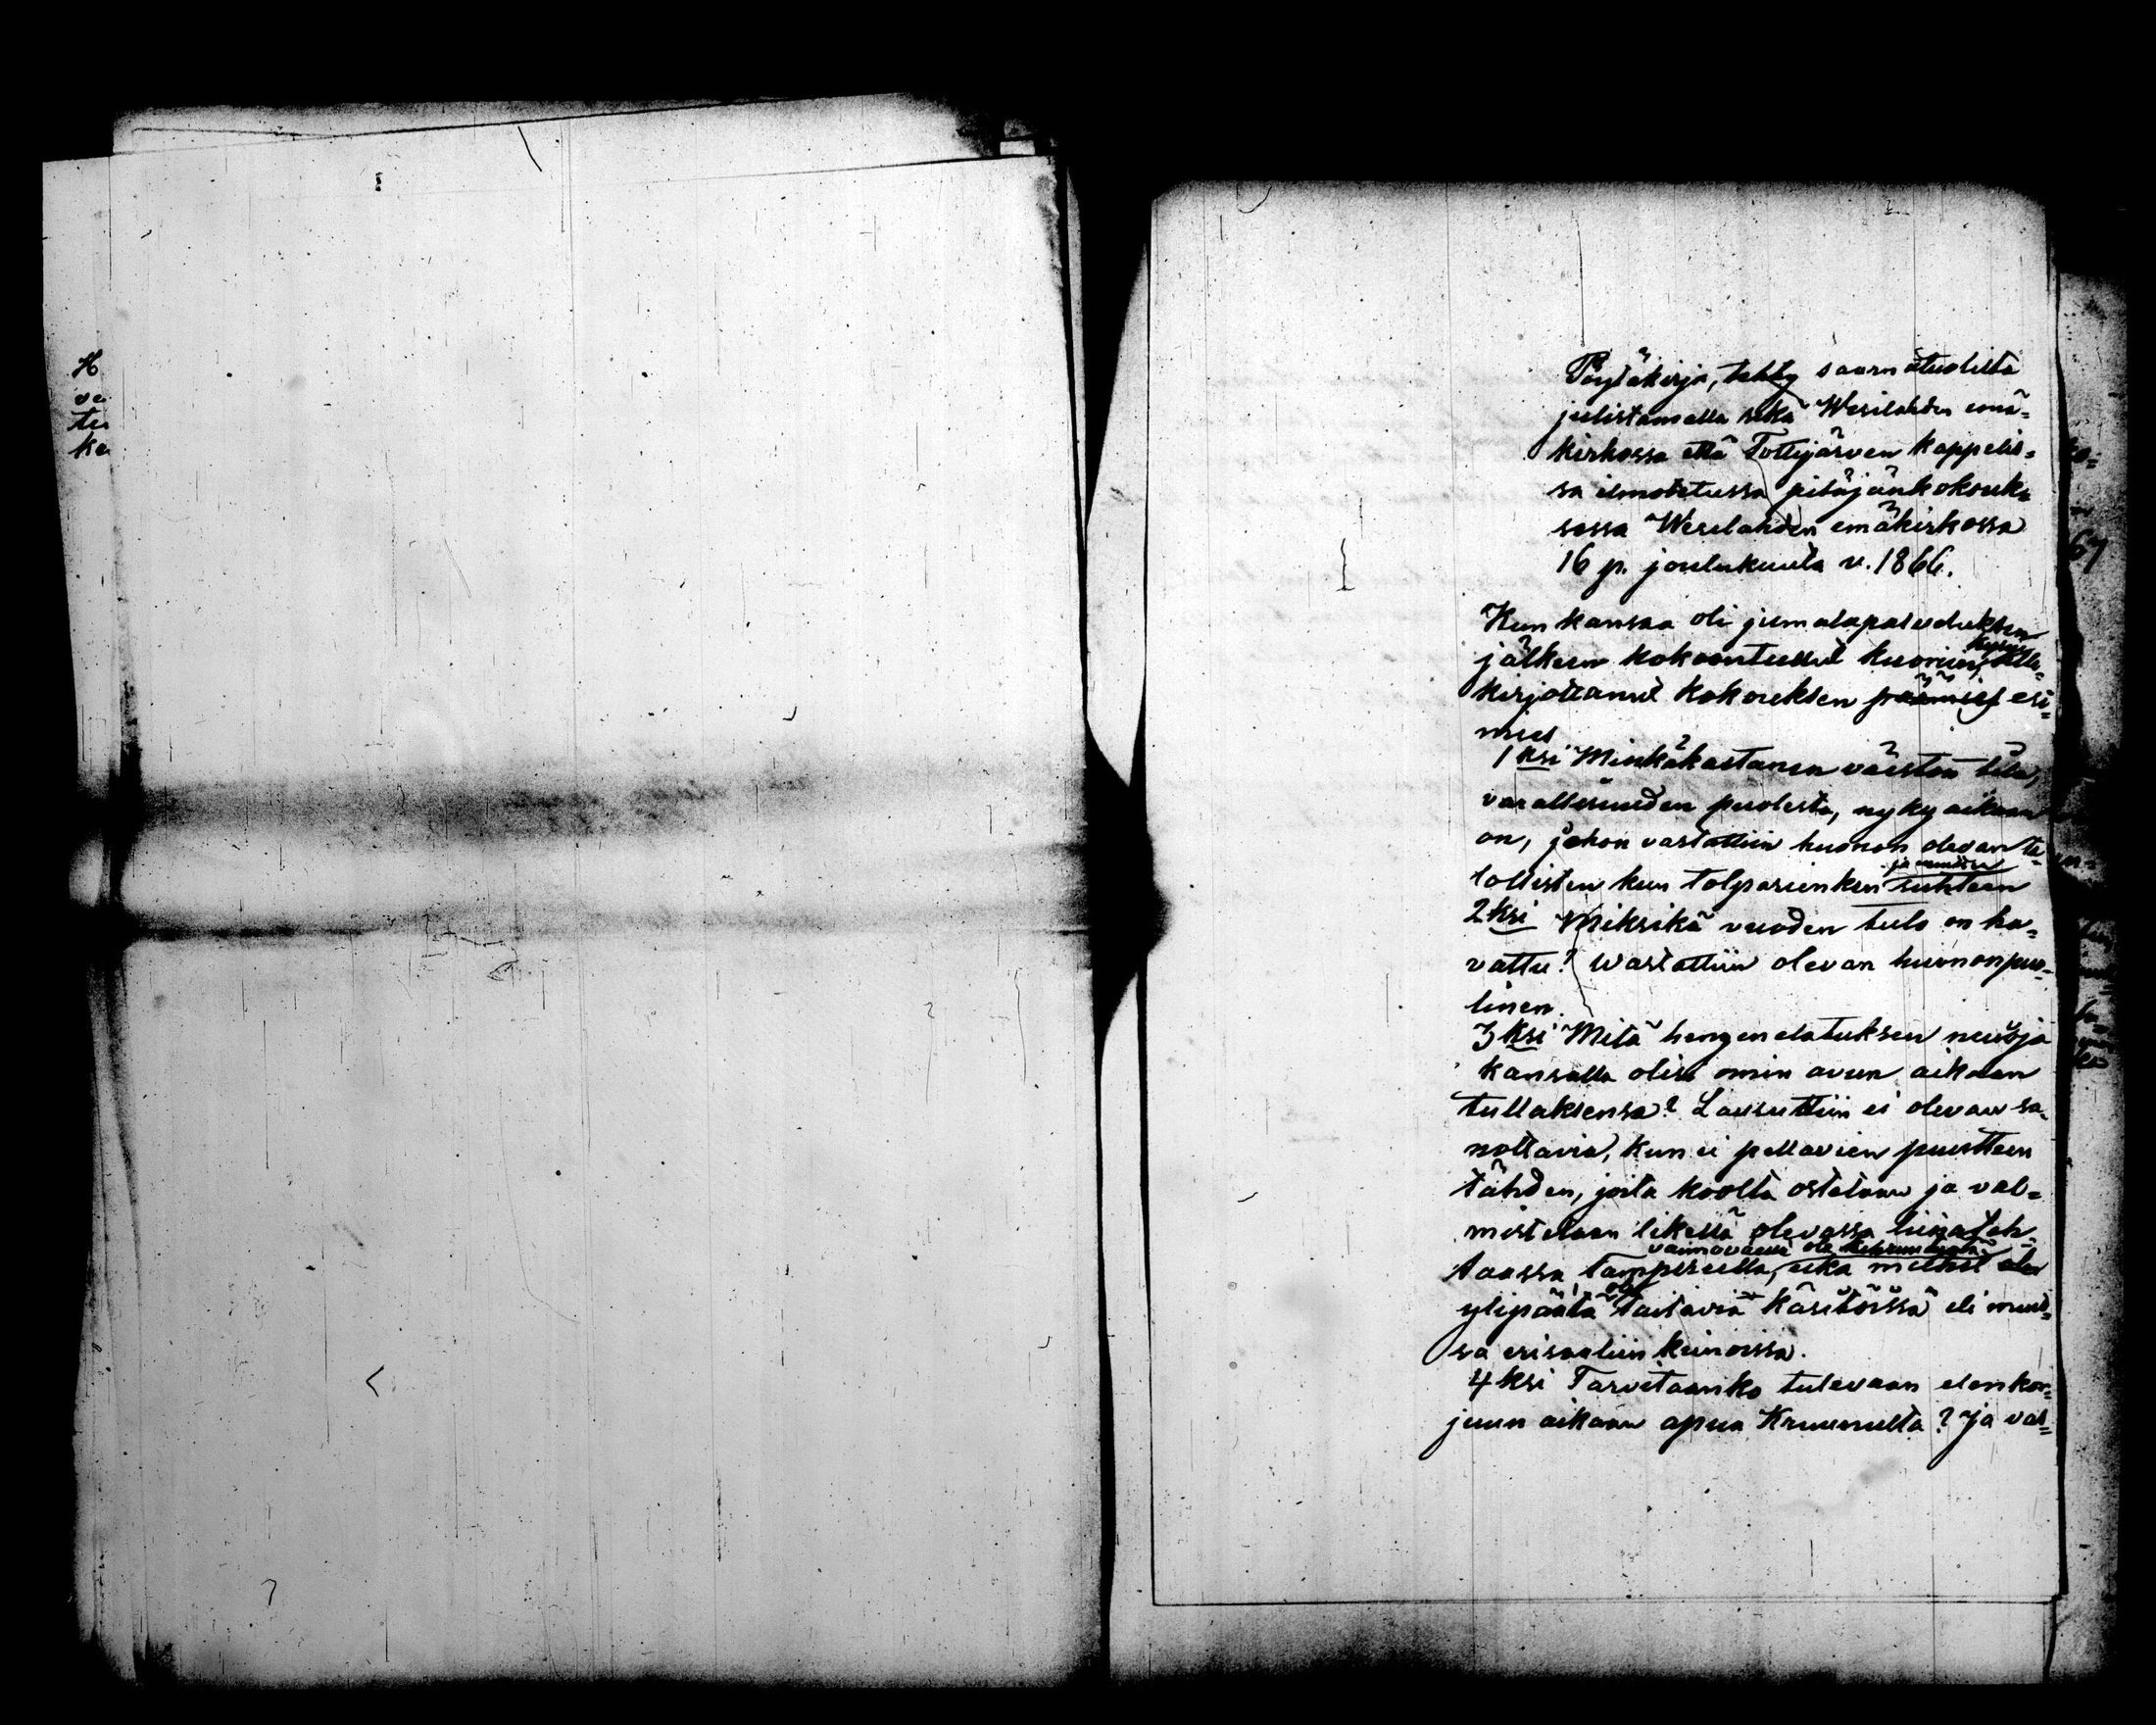 H
ve
tu
ka
Pöytäkirja, tehty saarnatuolilta
julistamalla sekä Wesilahden emä-
kirkossa että Tottijärven kappelis-
sa ilmotetussa pitäjänkokouk-
sessa Wesilahden emäkirkossa
16 p. joulukuuta v. 1866.
Kun kansaa oli jumalapalveluksen
jälkeen kokoontunut kuoriin, kysyi alle-
kirjottanut kokouksen esi-
mies
1 ksi Minkäkaltanen väestön tila,
varallisuuden puolesta, nykyaikaan
on, johon vastattiin huonon olevan ta-
lollisten kun torpparienkin ja muiden suhteen
2 ksi Miksikä vuoden tulo on ha-
vattu? Wastattiin olevan huononpuo-
linen.
3 ksi Mitä hengenelatuksen neuvoja
kansalla olisi omin avuin aikaan
tullaksensa? Lausuttiin ei olevan sa-
nottavia, kun ei pellavien puutteen
tähden, joita koolta ostetaan ja val-
mistetaan likellä olevassa liinateh-
taassa Tampereella, vaimoväellä ole kehruutyötä eikä miehet ole
ylipäätä taitavia käsitöissä eli muis-
sa erisnaliin keinoissa.
4 ksi Tarvitaanko tulevaan elonkor-
juun aikaan apua Kruunulta? Ja vas-
ko-
67